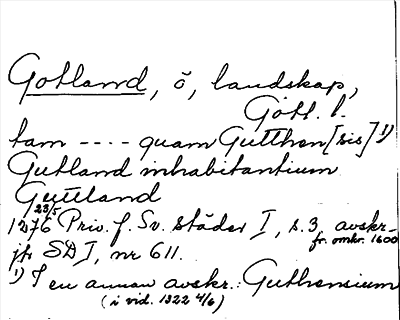 Gotland, ö, landskap,
Gotl. l.
tam ---- quam Gutthen [sis] 1)
Gutland inhabitantium
Guttland
23/5
1276 Priv. f. Sv. städer I, s. 3, avskr.
fr. omkr. 1600
jfr SD I, nr 611.
1) I en annan avskr.: Guthensium
(i vid. 1322 4/6)